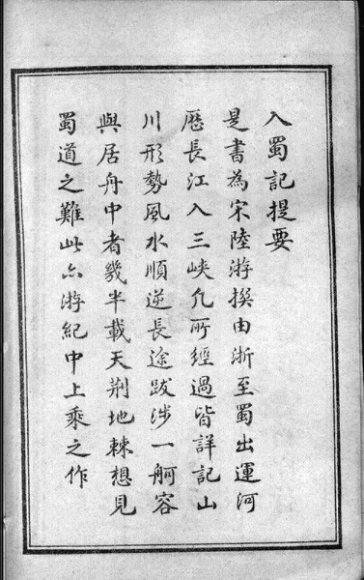 入蜀記提要
是書為宋陸游撰由浙至蜀出運河
歷長江入三峽凡所經過皆詳記山
川形勢風水順逆長途跋涉一舸容
與居舟中者幾半載天荊地棘想見
蜀道之難此亦游紀中上乘之作